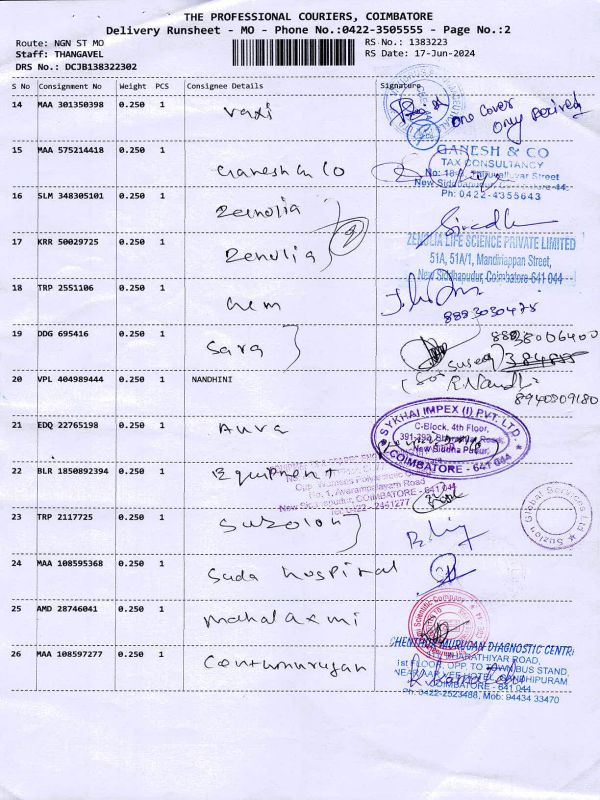 THE PROFESSIONAL COURIERS, COIMBATORE
Delivery Runsheet - MO - Phone No.:0422-3505555 - Page No.:2
Route: NGN ST MO
RS No.: 1383223
Staff: THANGAVEL
RS Date: 17-Jun-2024
DRS No.: DCJB138322302
S No Consignment No Weight PCS Consignee Details Signature
14 MAA 301350398 0.250 1
one cover
only
15 MAA 575214418 0.250 1 Ganesh & Co
GANESH & CO
TAX CONSULTANCY
Street
New Siddhapudur, Coimbatore-44.
Ph: 0422-4355643
16 SLM 348305101 0.250 1 Zenolia
17 KRR 50029725 0.250 1 Zenolia
ZENOLIA LIFE SCIENCE PRIVATE LIMITED
51A, 51A/1, Mandiriappan Street,
New Siddhapudur, Coimbatore-641 044
18 TRP 2551106 0.250 1
8883030475
19 DDG 695416 0.250 1 Sara
20 VPL 404989444 0.250 1 NANDHINI
R. Nandhi
21 EDQ 22765198 0.250 1 Auva
SYKHAI IMPEX (I) PVT. LTD.
C-Block, 4th Floor,
New Siddha Pudur,
COIMBATORE - 641 044
22 BLR 1850892394 0.250 1 Equipment
No. 1, Avarampalayam Road
New Siddhapudur, COIMBATORE - 641 044
Tel: 0422 - 2441277
23 TRP 2117725 0.250 1 Suzolon
Suzlon Global Services Ltd
24 MAA 108595368 0.250 1 Suda hospital
25 AMD 28746041 0.250 1 mahalaxmi
Scientific Company
26 MAA 108597277 0.250 1
DIAGNOSTIC CENTR
BHARATHIYAR ROAD,
1st FLOOR, OPP. TO TOWN BUS STAND,
HOTEL, GANDHIPURAM
COIMBATORE - 641 044
Ph: 0422-2523488, Mob: 94434 33470